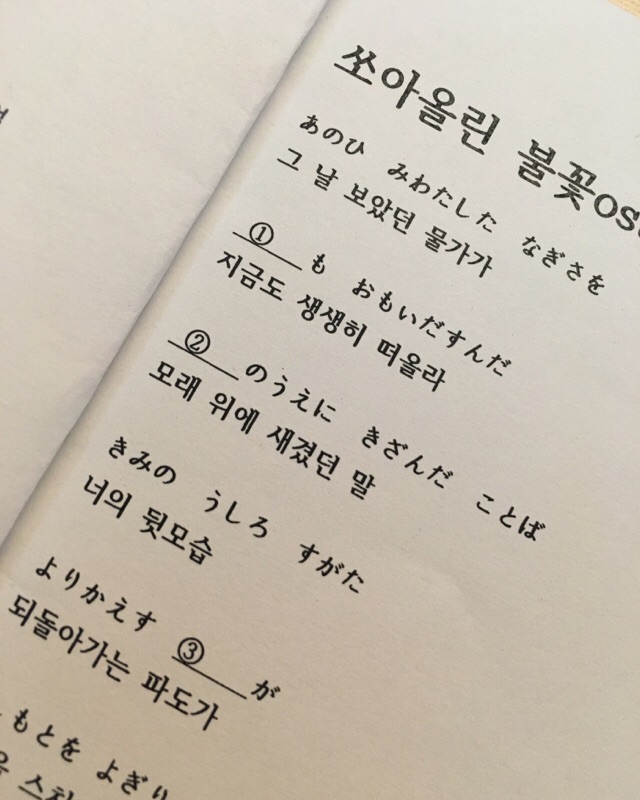 쏘아올린 불꽃os
あのひ みわたした なぎさを
그 날 보았던 물가가
① も おもいだすんだ
지금도 생생히 떠올라
② のうえに きざんだ ことば
모래 위에 새겼던 말
きみの うしろ すがた
너의 뒷모습
よりかえす ③ が
되돌아가는 파도가
もとを よぎり